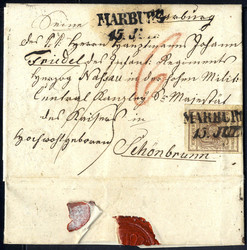 MARBURG
15. JUL
Seine
des Herrn Hauptmann Johann
Friedel des Infant. Regiments
Herzog Nassau in der hohen Militär
Central Kanzley Sr. Majestät
des Kaisers in
Hochwohlgeboren
Schönbrunn
MARBURG
15. JUL